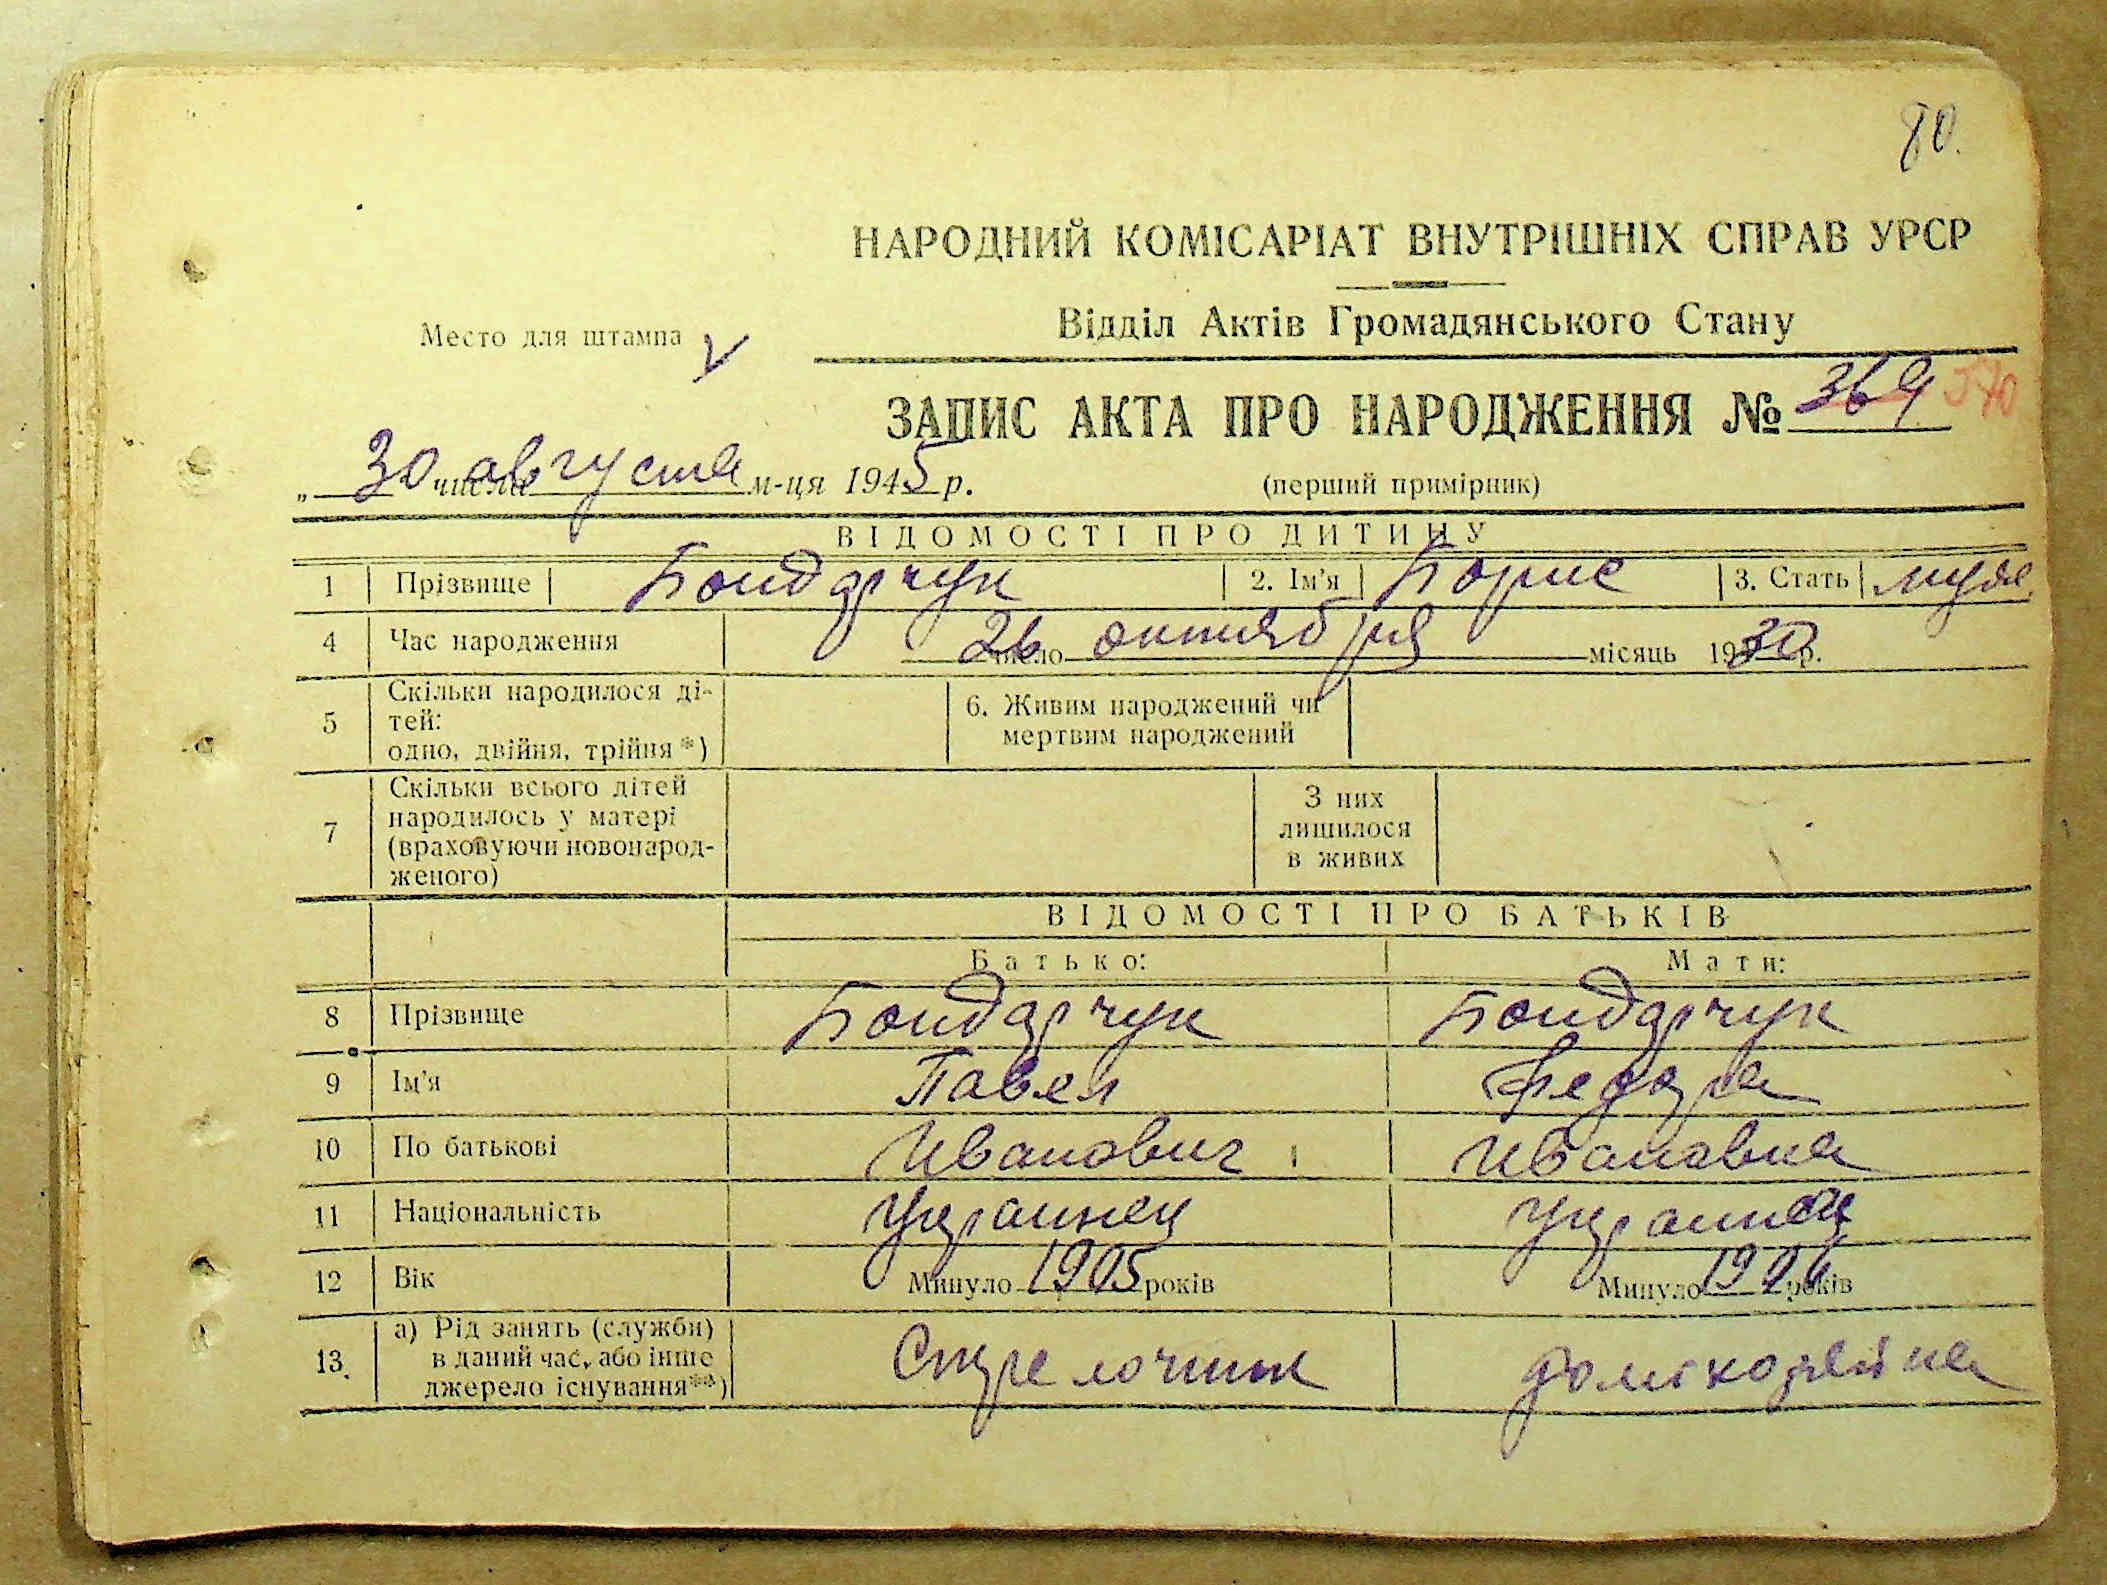 80.
НАРОДНИЙ КОМІСАРІАТ ВНУТРІШНІХ СПРАВ УРСР
Відділ Актів Громадянського Стану
Место для штампа V
ЗАПИС АКТА ПРО НАРОДЖЕННЯ № 369 570
„ 30 числа августа м-ця 1945 р.
(перший примірник)
ВІДОМОСТІ ПРО ДИТИНУ
1 Прізвище Бондарчук 2. Ім'я Борис 3. Стать муж.
4 Час народження 26 число октября місяць 1930 р.
5 Скільки народилося ді-
тей:
одно, двійня, трійня*)
6. Живим народжений чи
мертвим народжений
7 Скільки всього дітей
народилось у матері
(враховуючи новонарод-
женого)
З них
лишилося
в живих
ВІДОМОСТІ ПРО БАТЬКІВ
Батько: Мати:
8 Прізвище Бондарчук Бондарчук
9 Ім'я Павел Федора
10 По батькові Иванович Ивановна
11 Національність Украинец Украинец
12 Вік Минуло 1905 років Минуло років
13. а) Рід занять (служби)
в даний час, або інше
джерело існування**)
Стрелочник домохозяйка